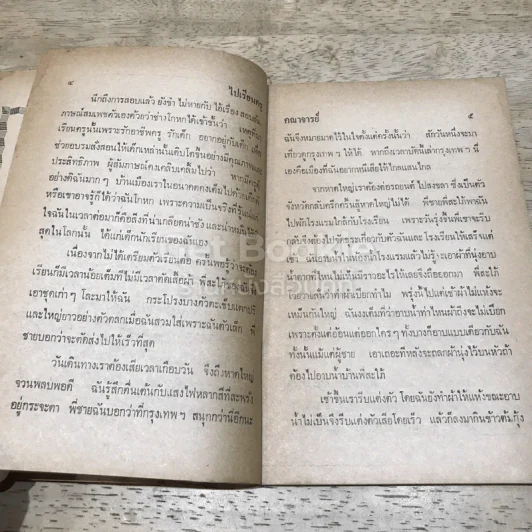 ๔ ไปเรียนครู
นึกถึงการสอบแล้ว ยังขำ ไม่หายกับ ไอ้เรื่อง สอบสัม-
ภาษณ์สมเพชตัวเองด้วยว่าช่างโกหกได้เข้าขั้นว่า เหตุที่มา
เรียนครูนั้นเพราะรักอาชีพครู รักเด็ก อยากอยู่กับเด็ก เพื่อ
ช่วยอบรมสั่งสอนให้เด็กเหล่านั้นเติบโตขึ้นอย่างมีคุณภาพและ
ประสิทธิภาพ ผู้สัมภาษณ์คงเคลิบเคลิ้มไปว่า หากมีครูดี
อย่างดิฉันมาก ๆ บ้านเมืองเราในอนาคตคงเต็มไปด้วยเด็กดี
หรือเขาอาจรู้ก็ได้ว่าฉันโกหก เพราะความเป็นจริงที่รู้กันแน่
ใจฉันในเวลาต่อมาก็คือสิ่งที่น่าเกลียดน่าชัง และน่ารำคาญที่
สุดในโลกนั้น ได้แก่เด็กนักเรียนของฉันเอง
เนื่องจากไม่ได้เตรียมตัวเรียนต่อ ควนพอรู้ว่าจะต้อง
เรียนก็มีเวลาน้อยเต็มทีไม่มีเวลาตัดเสื้อผ้า พี่สะใภ้ของฉัน
เอาชุดเก่า ๆ โละมาให้ฉัน กระโปรงบางตัวตะเข็บแทบปริ
และใหญ่ยาวอย่างตัวตลกเมื่อฉันสวมใส่เพราะฉันตัวเล็ก พี่
ชายบอกว่าจะตัดส่งไปให้เร็วที่สุด
วันเดินทางเราต้องเสียเวลาเกือบวัน จึงถึงหาดใหญ่
จวนพลบพอดี ฉันรู้สึกตื่นเต้นกับแสงไฟหลากสีที่พะพร่าง
อยู่กระจะตา พี่ชายฉันบอกว่าที่กรุงเทพ ๆ สนุกกว่านี้อีกนะ
คณาจารย์ ๕
ฉันจึงหมายมาดไว้ในใจตั้งแต่ครั้งนั้นว่า สักวันหนึ่งจะมา
เที่ยวดูกรุงเทพ ๆ ให้ได้ หากถึงเวลานัดกันถ้ากรุงเทพ ๆ นี่
เองคือเมืองที่ฉันอยากหนีเสียให้ไกลแสนไกล
จากหาดใหญ่เราต้องต่อรถยนต์ ไปสงขลา ซึ่งเป็นตัว
จังหวัดกลับครึกครื้นสู้หาดใหญ่ไม่ได้ พี่ชายพี่สะใภ้พาฉัน
ไปพักโรงแรมใกล้กับโรงเรียน เพราะวันรุ่งขึ้นพี่เขาจะรีบ
กลับต้องส่งไปทำธุระเกี่ยวกับตัวฉัน และโรงเรียนให้เสร็จแต่
เช้า ฉันอาบน้ำในห้องน้ำโรงแรมแล้วไม่รู้จะเอาผ้าที่นุ่งอาบ
น้ำตากที่ไหนไม่เห็นมีราวอะไรให้เลยจึงถือออกมา พี่สะใภ้
โวยวายลั่นว่าทำผ้าเปียกทำไม พรุ่งนี้ไปแต่เช้าผ้าไม่แห้งจะ
เหม็นกันใหญ่ ฉันงงเต็มที่ว่าอาบน้ำทำไหนผ้าถึงจะไม่เปียก
เพราะตั้งแต่อ้อนแต่ออกใคร ๆ บางก็อาบแบบเดียวกับฉัน
ทั้งนั้นแม้แต่ผู้ชาย เอาเถอะที่หลังจะถลกผ้านุ่งไว้บนหัวถ้า
ต้องไปอาบน้ำบ้านพี่สะใภ้
เช้าขึ้นเรารีบแต่งตัว โดยฉันยังทำผ้าให้แห้งขณะอาบ
น้ำไม่เป็นจึงรีบแต่งตัวเสียโดยเร็ว แล้วก็ลงมากินข้าวต้มกุ้ง